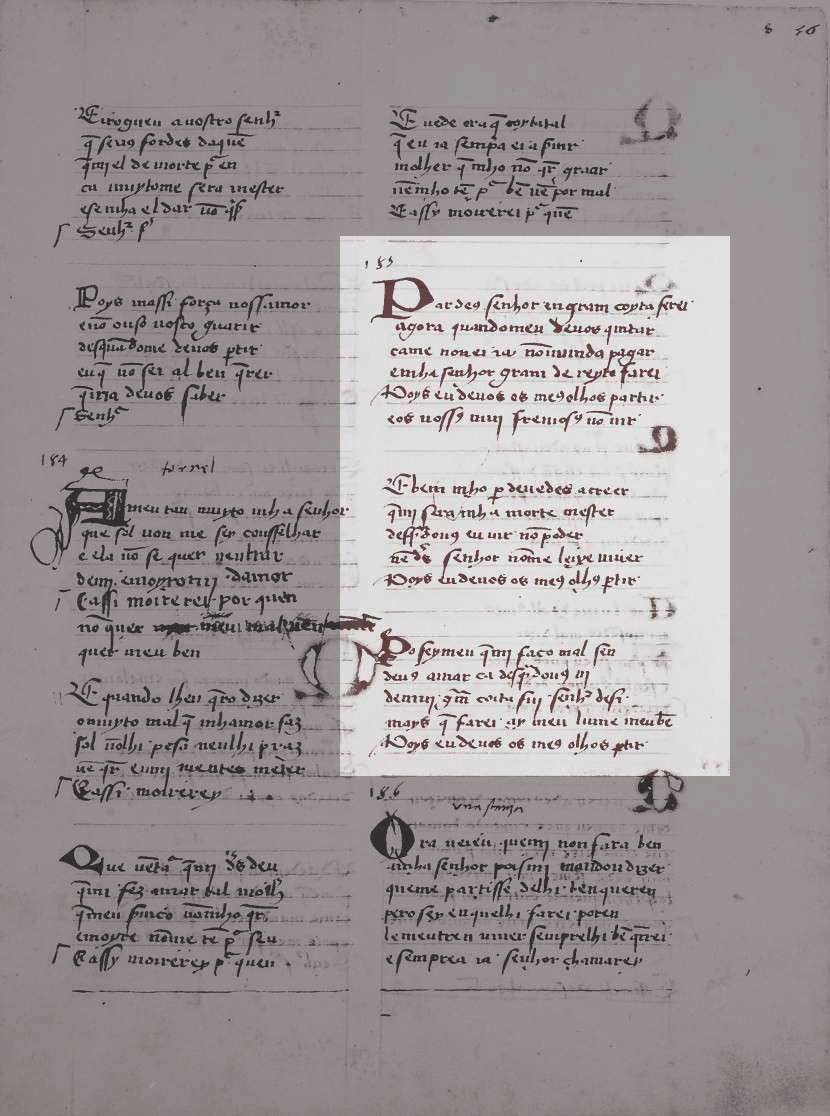 Eiroguen auostro senhꝛ
q̄ serug fordes daque
q̄mi el de morte p̱ en
ca muytome sera mester
ese mha el dar nō q̄ʃ
Senhꝛ
Poys massi força uossamor
enō ouso uosco guarir
desquādome deuos ꝑtir
euq̄ nō sei al ben q̄rer
q̄iria deuos saber
Senhꝛ
184
tornel
Ameu tan muyto mha senhor
que sol non me sey conselhar
e ela nō se quer nenbrar
demi. emoyromi damor
E assi moirerey por quen
nō quer
quer meu ben
E quando lheu q̄ro dizer
omuyto mal q̄ mhamor faz
sol nōlhi pesa nenlhi praz
nē q̄r emi mentes meter
E assi moirerey
Que uētaꝛ q̄mi ds̄ deu
q̄mi fez amar tal molhꝛ
q̄meu seruiço nōmho q̄r
emoyro nōme tē pꝛ seu
E assy moirerey pꝛ quen
8 56
E uede oraq̄ coyta tal
q̄ eu ia sempa ei a seruir
molher q̄ mho nō q̄r graçir
nē mho tē pꝛ bē nē por mal
E assy moirerei pꝛ quē
185
Par deꝯ senhor en gram coyta serei
agora quandomeu deuos quitar
came non ei ia nōmundo pagar
emha senhor gram dereyto farei
Poys eu deuos os meꝯ olhos partir
eos uossꝯ mui fremosꝯ nō uir
E bem mho ꝑ deuedes a creer
q̄mi sera mha morte mester
desq̄ douꝯ eu uir nō poder
nē ds̄ senhor nōme leixe uiuer
Poys eu deuos os meꝯ olhꝯ ꝑtir
Po sey meu q̄mi faço mal sen
deuꝯ amar ca desq̄ douꝯ ui
demui gm̄ coita fui senhꝛ desi
mays q̄ farei ay meu lume meu bē
Poys eu deuos os meꝯ olhos ꝑtir
186
Ora ueieu quemi non fara ben
mha senhor poismi mandou dizer
queme partisse delhi ben querer
pero sey euquelhi farei poren
lemeutren uiuer semprelhi bē q̄rrei
e sempre a ia senhor chamarey